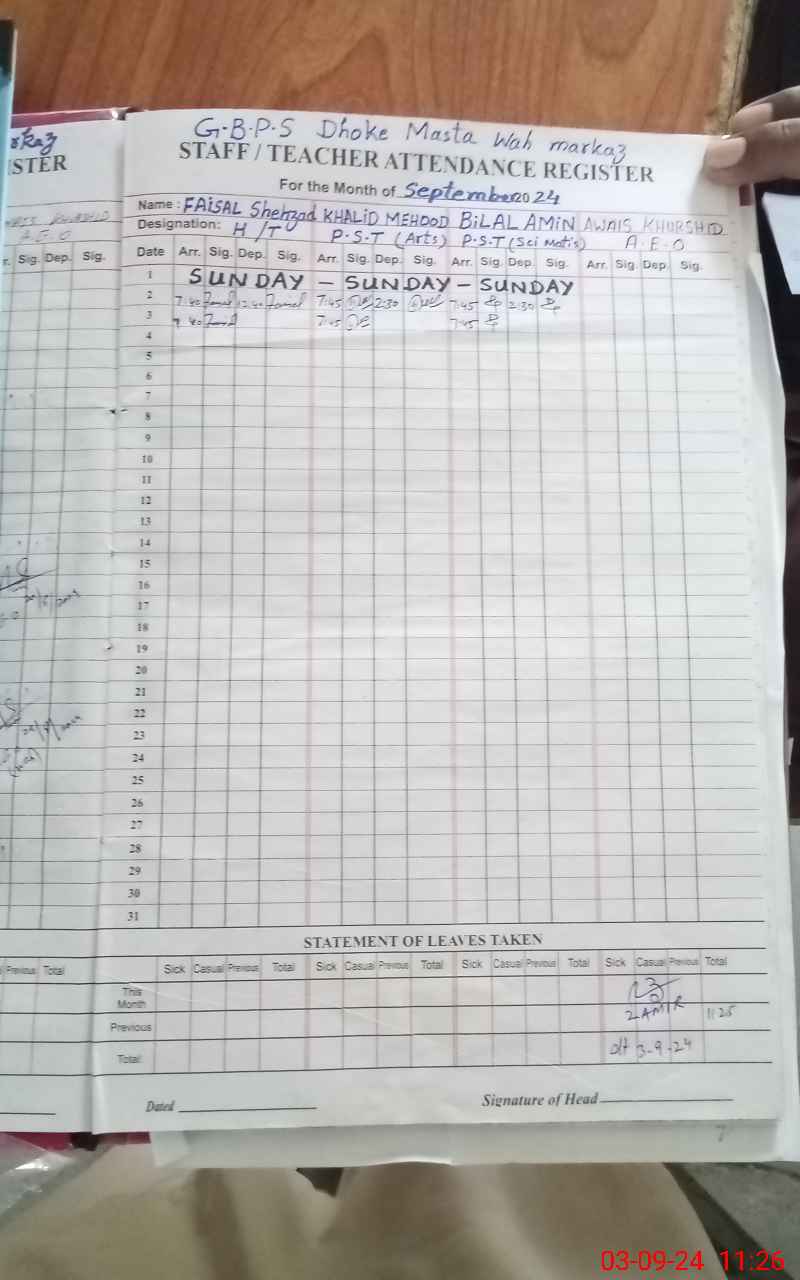 G.B.P.S Dhoke Masta Wah markaz
STAFF / TEACHER ATTENDANCE REGISTER
For the Month of September 2024
Name : FAiSAL Shehzad KHALiD MEHOOD BiLAL AMiN AWAIS KHURSHID
Designation: H/T P.S.T (Arts) P.S.T (Sci Math) A.E.O
Date Arr. Sig. Dep. Sig. Arr. Sig. Dep. Sig. Arr. Sig. Dep. Sig. Arr. Sig. Dep. Sig.
1 SUNDAY - SUNDAY - SUNDAY
2 7:40 12:40 7:45 2:30 7:45 2:30
3 7:40 7:45 7:45
4
5
6
7
8
9
10
11
12
13
14
15
16
17
18
19
20
21
22
23
24
25
26
27
28
29
30
31
STATEMENT OF LEAVES TAKEN
Sick Casual Previous Total Sick Casual Previous Total Sick Casual Previous Total Sick Casual Previous Total
This
Month
ZAMIR
Previous 11:25
Total 3-9-24
Dated
Signature of Head
ISTER
Sig. Dep. Sig.
Previous Total
03-09-24 11:26